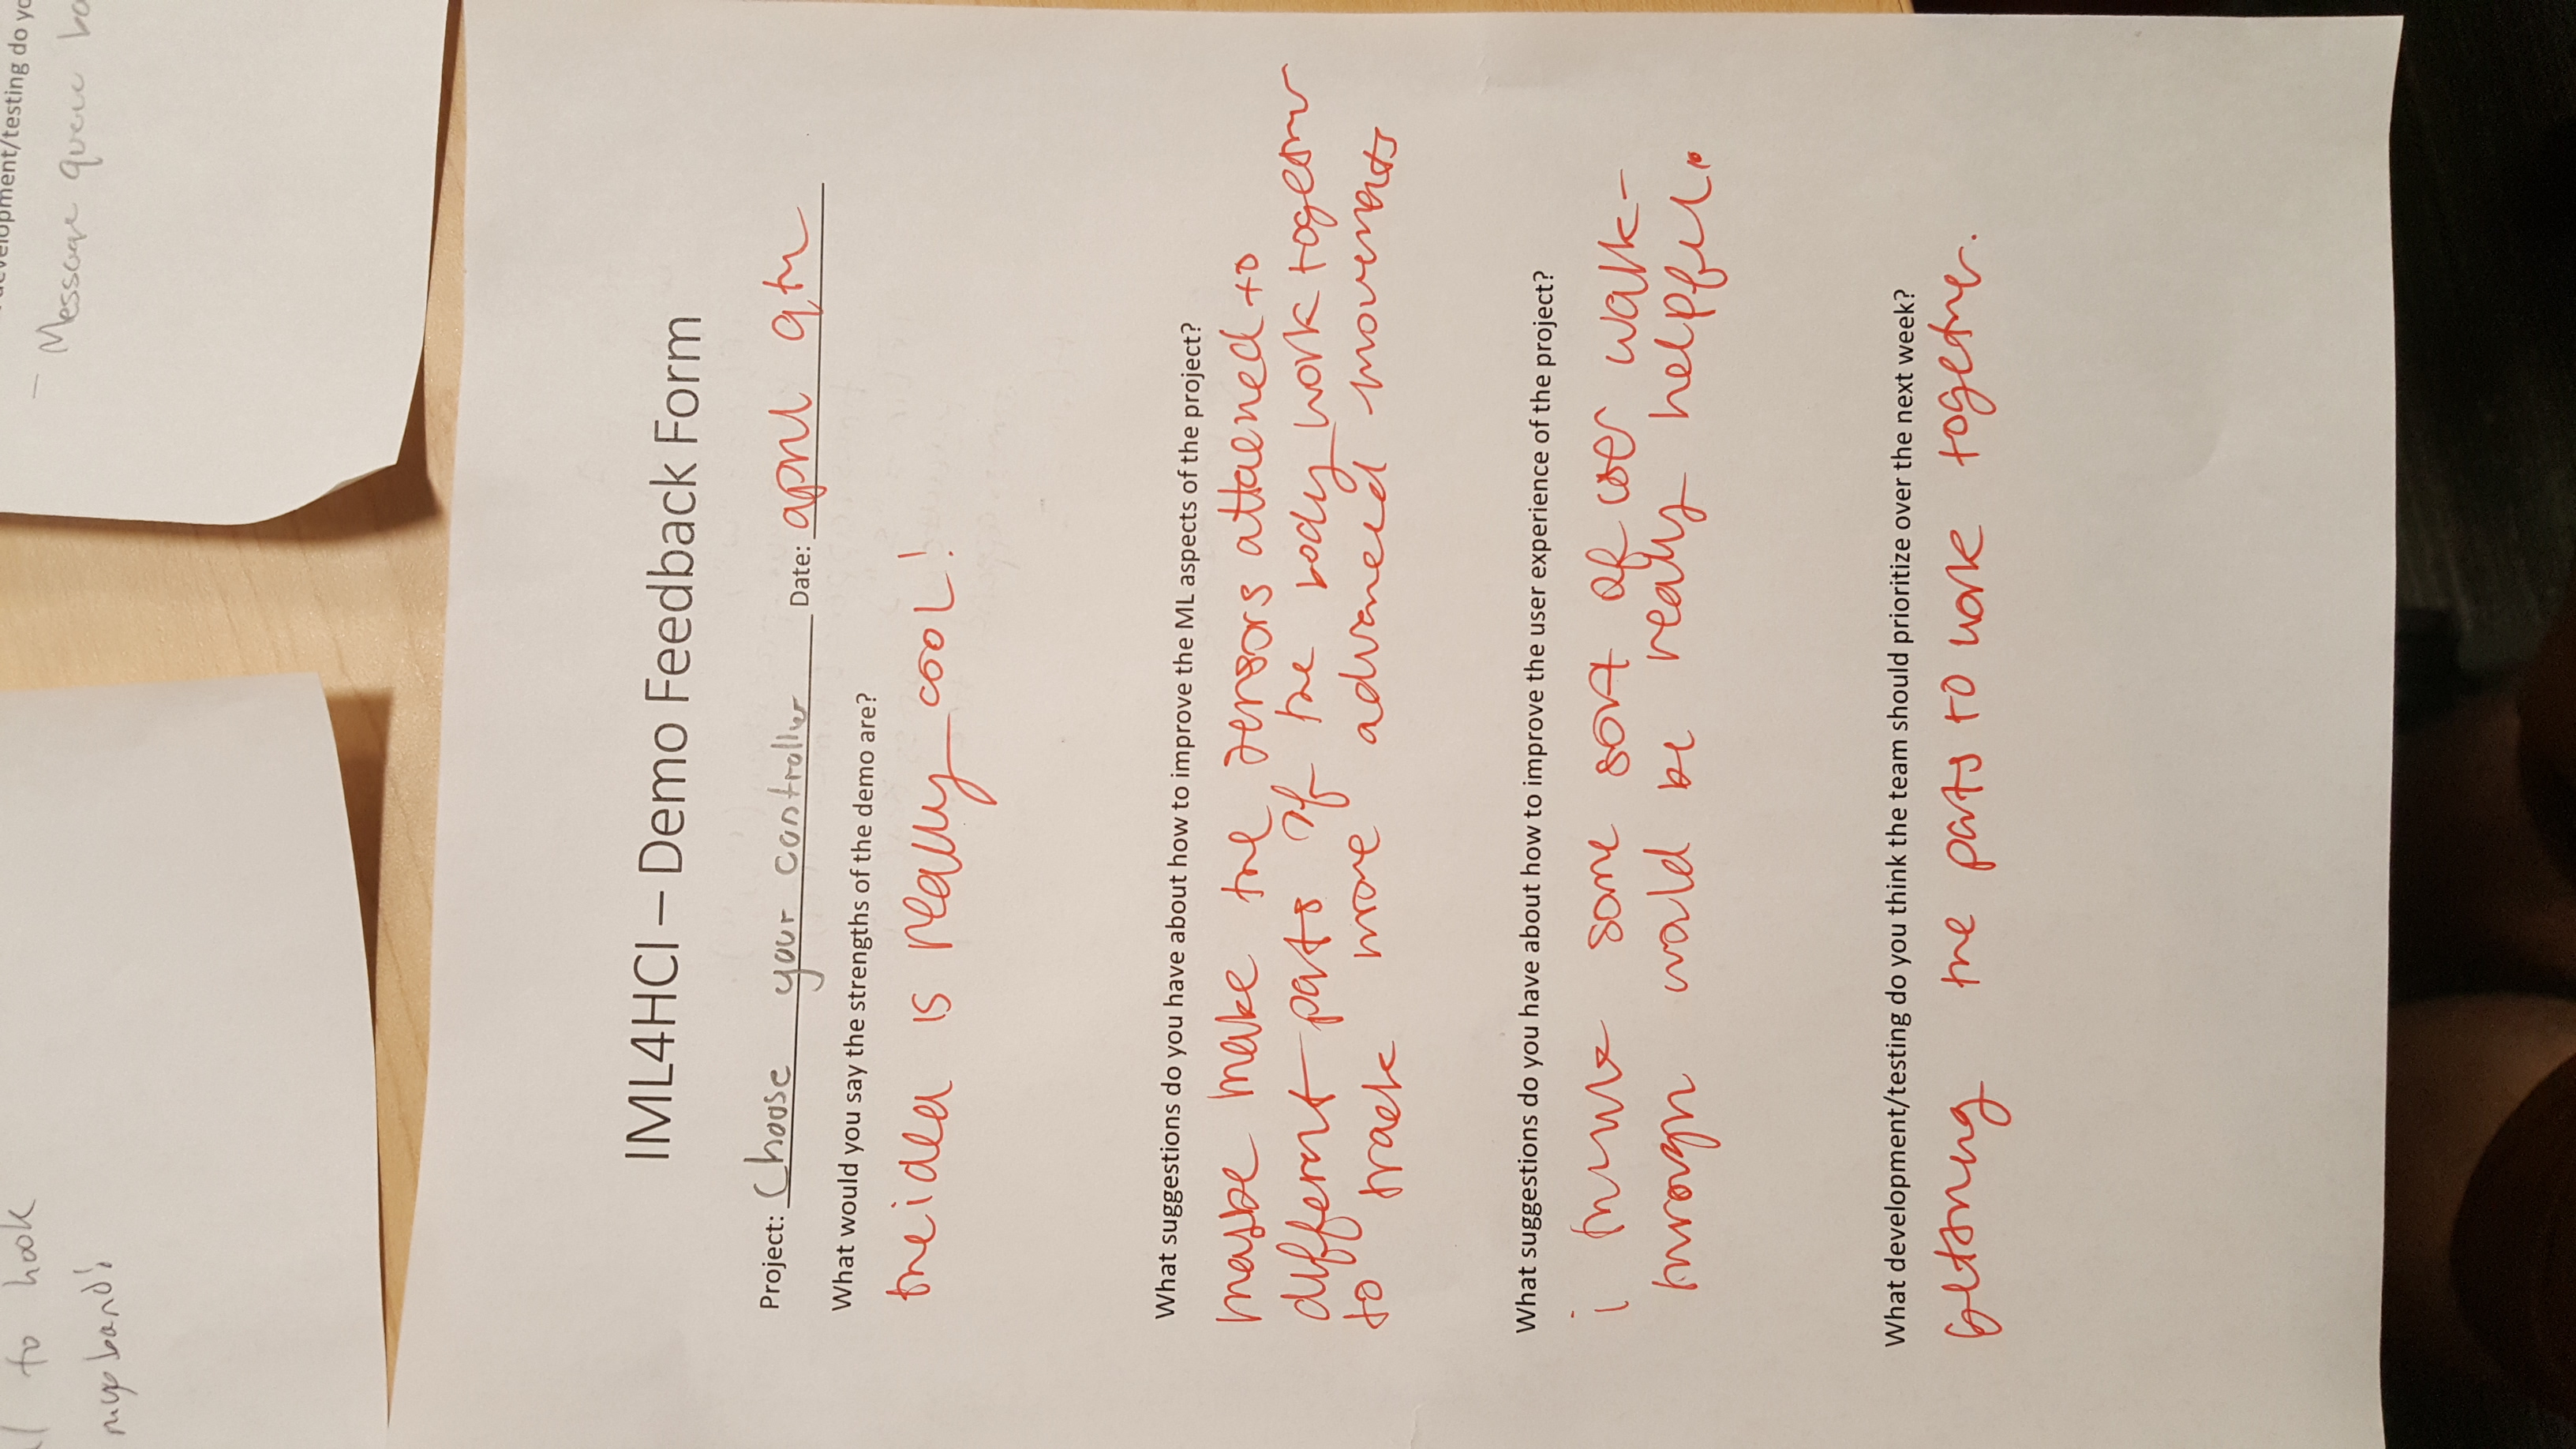 to hook
myo bands!
development/testing do yo
- Message queue ba
IML4HCI – Demo Feedback Form
Project: Choose your controller Date: april 9th
What would you say the strengths of the demo are?
the idea is really cool!
What suggestions do you have about how to improve the ML aspects of the project?
maybe make the sensors attached to
different parts of the body work together
to track more advanced movements
What suggestions do you have about how to improve the user experience of the project?
i think some sort of user walk-
through would be really helpful.
What development/testing do you think the team should prioritize over the next week?
getting the parts to work together.